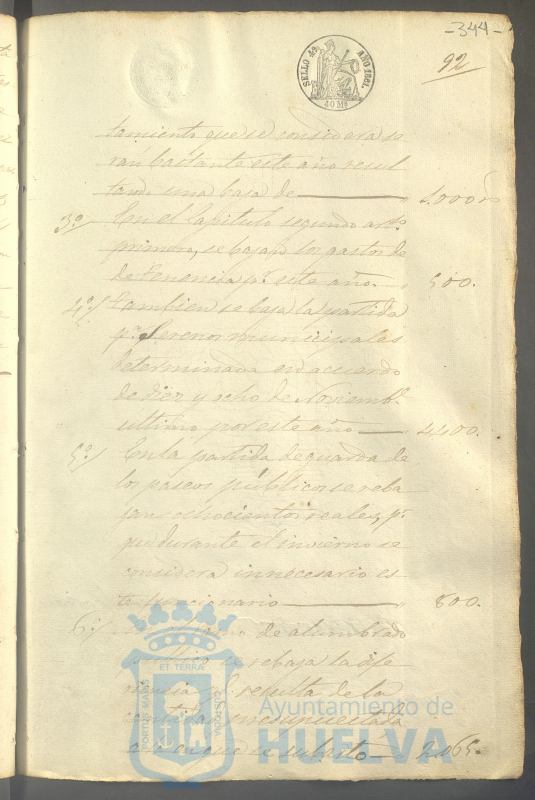 -344-
SELLO 4º AÑO 1861.
40 Ms
92
tamiento que se considera se
ran bastante este año resul
tando una baja de 1.000 rs
3º En el Capitulo segundo arto
primero, se bajan los gastos de
de p.r este año. 500.
4º/ Tambien se baja la partida
p.a Serenos municipales
determinada en acuerdo
de diez y ocho de Noviemb.e
ultimo por este año 4400.
5º/ En la partida de guarda de
los paseos públicos se reba
jan ochocientos reales, p.r
que durante el invierno se
considera innecesario es
te funcionario 800.
6º/ de alumbrado
publico se rebaja la dife
rencia q.e resulta de la
cantidad presupuestada
a la en que se subasto 2.065.
PORTUS MARIS
ET TERRÆ
CUSTODIA
Ayuntamiento de
HUELVA